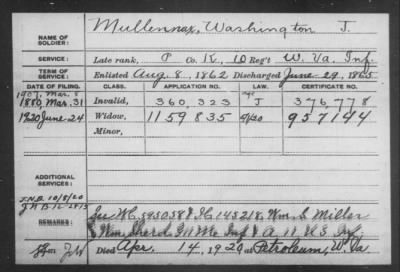 NAME OF SOLDIER: Mullennax, Washington J.
SERVICE: Late rank, P Co. K, 10 Reg't W. Va. Inf.
TERM OF SERVICE: Enlisted Aug. 8, 1862 Discharged June 29, 1865
DATE OF FILING. CLASS. APPLICATION NO. LAW. CERTIFICATE NO.
1907, Mar. 8
1880, Mar. 31 Invalid, 360,323 age J 376,778
1920 June 24 Widow, 1159835 5/1/20 957144
Minor,
ADDITIONAL SERVICES:
J.N.B. 10/8/20
REMARKS: See WC 595058 & XC 145218, Wm. S. Miller
Inf. & A, 11 U.S. Inf.
Died Apr. 14, 1920, at Petroleum, W. Va.